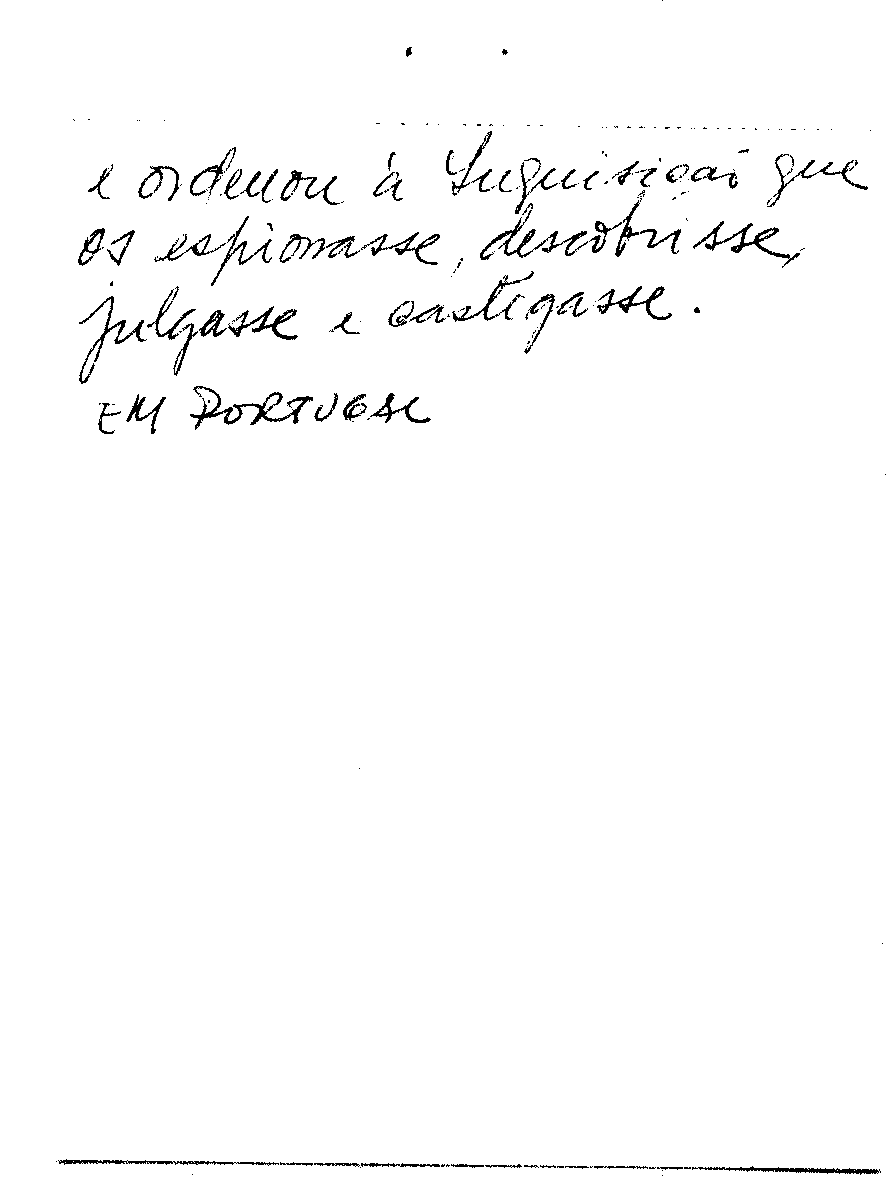 e ordenou à Inquisição que
os espionasse, descobrisse,
julgasse e castigasse.
EM PORTUGAL